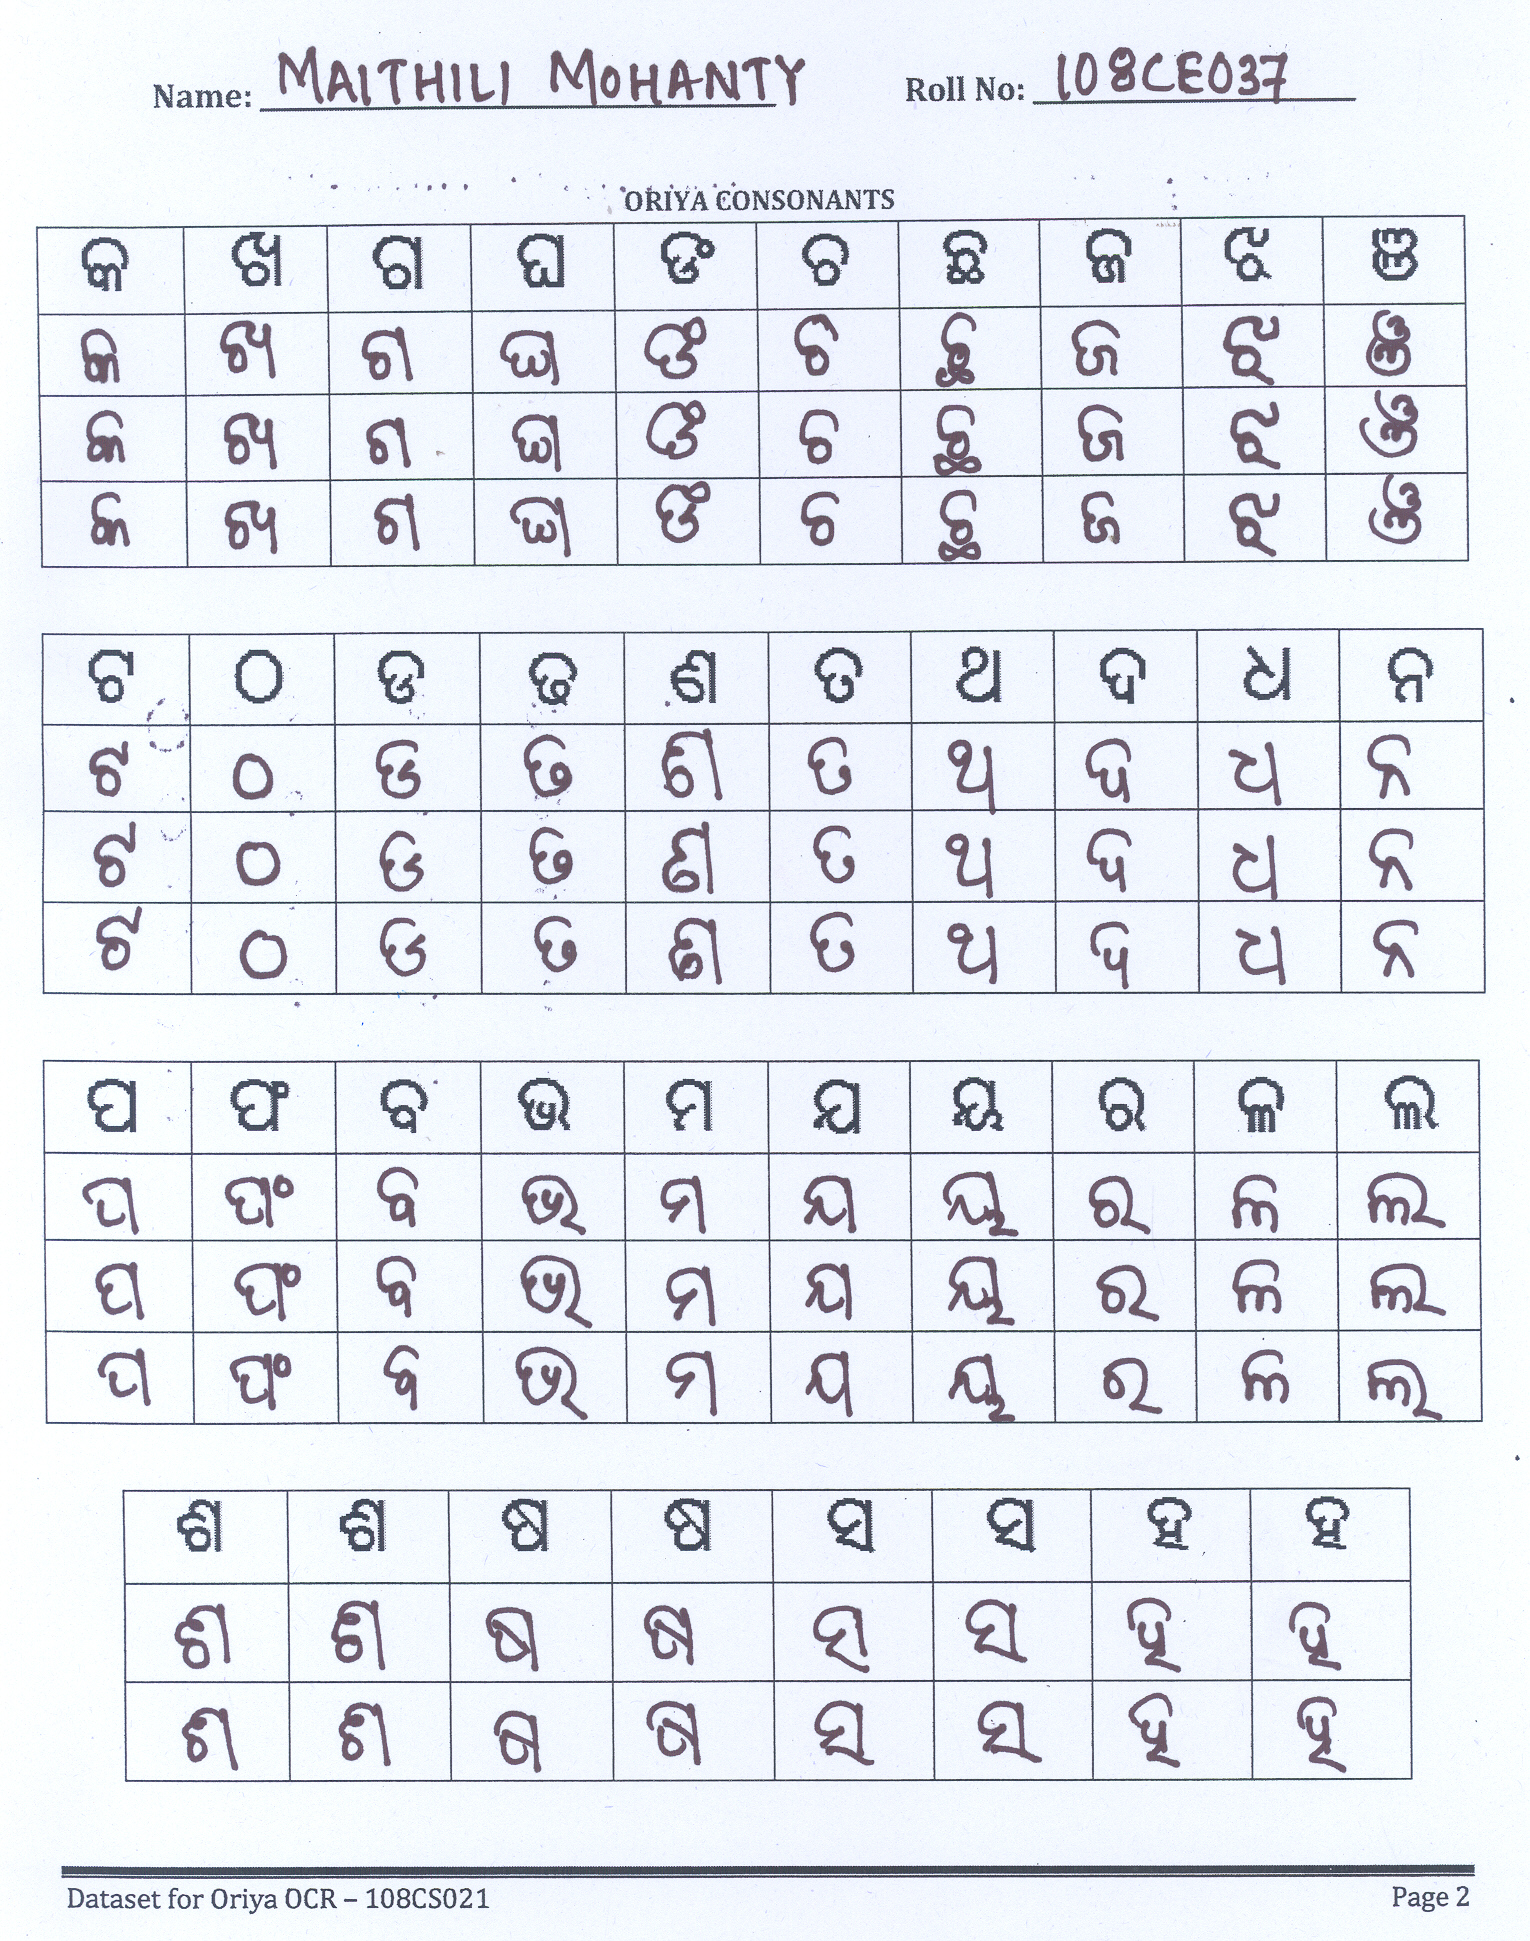 Name: MAITHILI MOHANTY Roll No: 108CE037
ORIYA CONSONANTS
କ ଖ ଗ ଘ ଙ ଚ ଛ ଜ ଝ ଞ
କ ଖ ଗ ଘ ଙ ଚ ଛ ଜ ଝ ଞ
କ ଖ ଗ ଘ ଙ ଚ ଛ ଜ ଝ ଞ
କ ଖ ଗ ଘ ଙ ଚ ଛ ଜ ଝ ଞ
ଟ ଠ ଡ ଢ ଣ ତ ଥ ଦ ଧ ନ
ଟ ଠ ଡ ଢ ଣ ତ ଥ ଦ ଧ ନ
ଟ ଠ ଡ ଢ ଣ ତ ଥ ଦ ଧ ନ
ଟ ଠ ଡ ଢ ଣ ତ ଥ ଦ ଧ ନ
ପ ଫ ବ ଭ ମ ଯ ୟ ର ଳ ଲ
ପ ଫ ବ ଭ ମ ଯ ୟ ର ଳ ଲ
ପ ଫ ବ ଭ ମ ଯ ୟ ର ଳ ଲ
ପ ଫ ବ ଭ ମ ଯ ୟ ର ଳ ଲ
ଶ ଶ ଷ ଷ ସ ସ ହ ହ
ଶ ଶ ଷ ଷ ସ ସ ହ ହ
ଶ ଶ ଷ ଷ ସ ସ ହ ହ
Dataset for Oriya OCR – 108CS021 Page 2